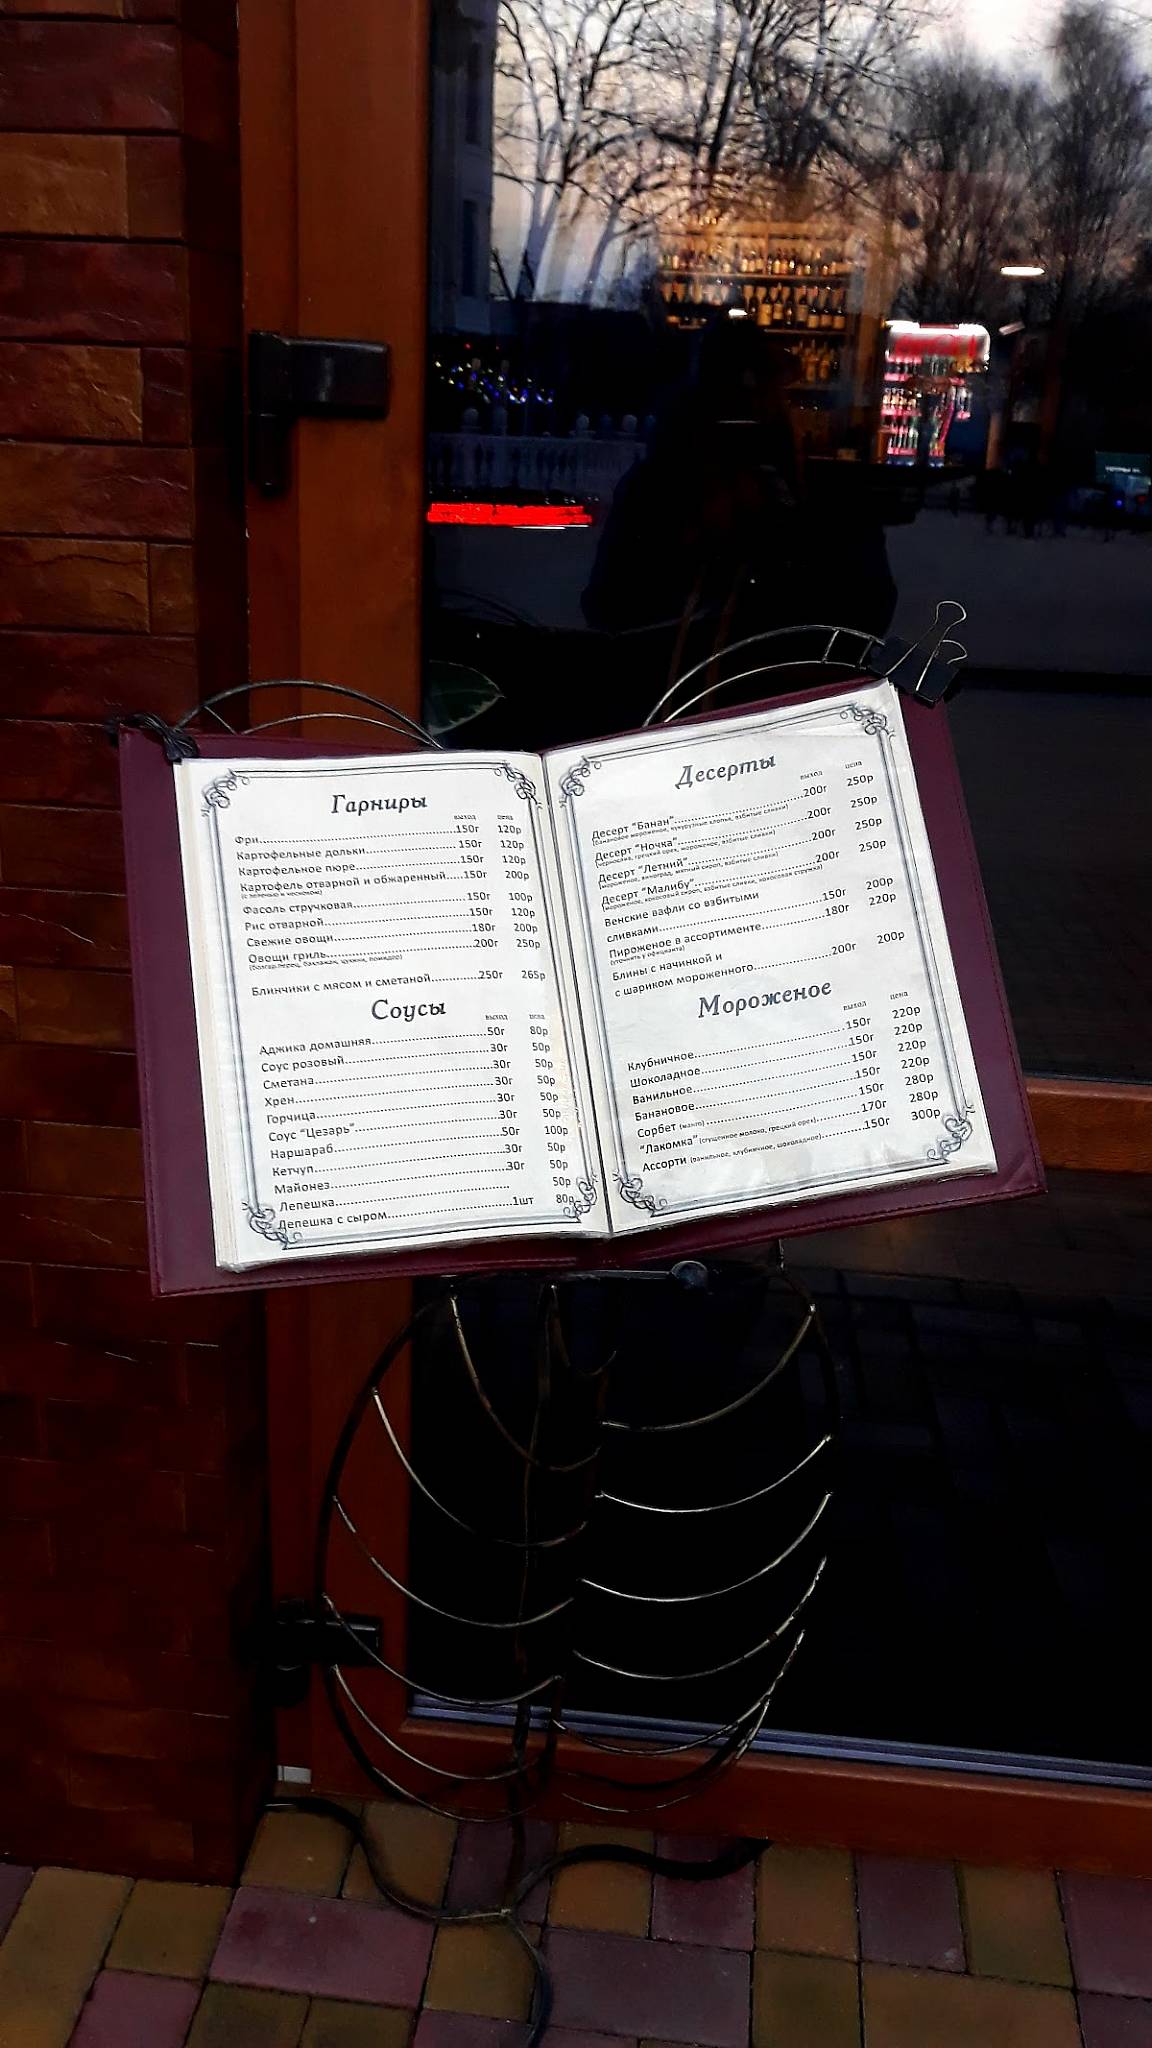 Гарниры
выход цена
Фри 150г 120р
Картофельные дольки 150г 120р
Картофельное пюре 150г 120р
Картофель отварной и обжаренный 150г 200р
(с зеленью и чесноком)
Фасоль стручковая 150г 100р
Рис отварной 150г 120р
Свежие овощи 180г 200р
Овощи гриль 200г 250р
(болгар.перец, баклажан, цукини, помидор)
Блинчики с мясом и сметаной 250г 265р
Соусы
выход цена
Аджика домашняя 50г 80р
Соус розовый 30г 50р
Сметана 30г 50р
Хрен 30г 50р
Горчица 30г 50р
Соус "Цезарь" 30г 50р
Наршараб 50г 100р
Кетчуп 30г 50р
Майонез 30г 50р
Лепешка 50р
Лепешка с сыром 1шт 80р
Десерты
выход цена
Десерт "Банан" 200г 250р
(банановое мороженое, кукурузные хлопья, взбитые сливки)
Десерт "Ночка" 200г 250р
(чернослив, грецкий орех, мороженое, взбитые сливки)
Десерт "Летний" 200г 250р
(мороженое, виноград, мятный сироп, взбитые сливки)
Десерт "Малибу" 200г 250р
(мороженое, кокосовый сироп, взбитые сливки, кокосовая стружка)
Венские вафли со взбитыми
сливками 150г 200р
Пироженое в ассортименте 180г 220р
(уточнить у официанта)
Блины с начинкой и
с шариком мороженного 200г 200р
Мороженое
выход цена
Клубничное 150г 220р
Шоколадное 150г 220р
Ванильное 150г 220р
Банановое 150г 220р
Сорбет (манго) 150г 280р
"Лакомка" (сгущенное молоко, грецкий орех) 170г 280р
Ассорти (ванильное, клубничное, шоколадное) 150г 300р